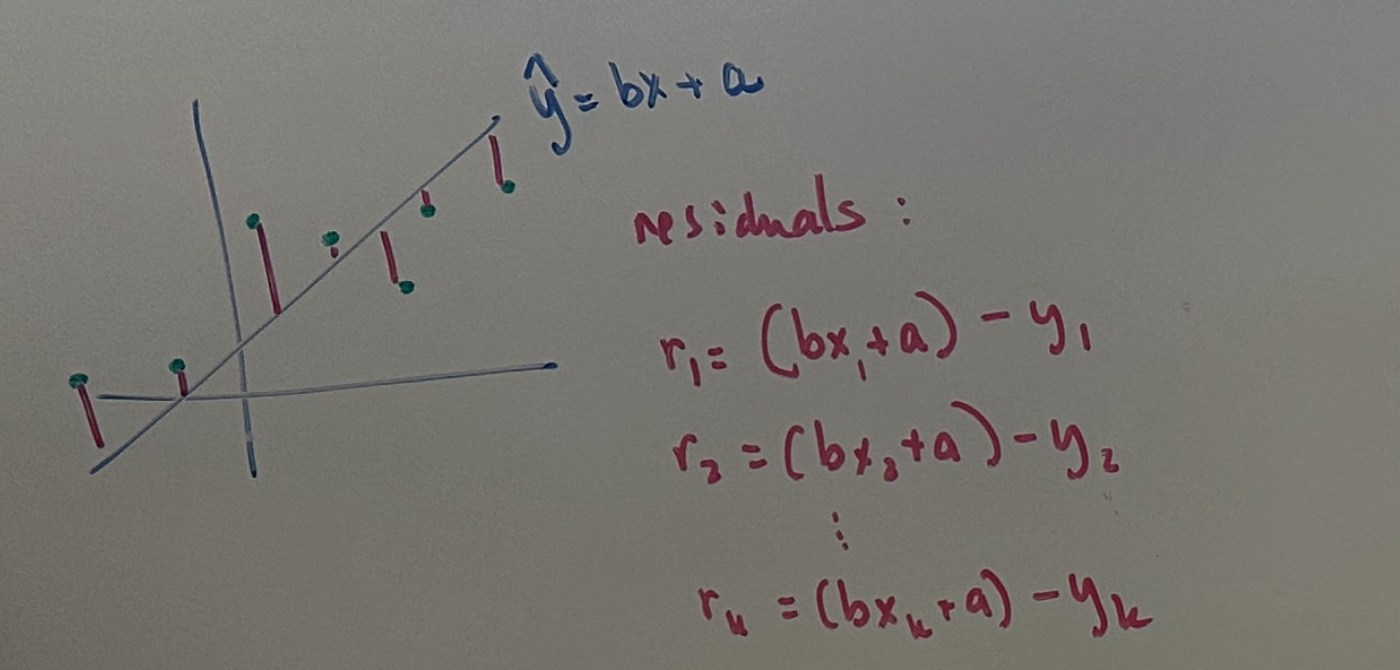 ŷ = bx + a
residuals :
r₁ = (bx₁ + a) - y₁
r₂ = (bx₂ + a) - y₂
⋮
rₖ = (bxₖ + a) - yₖ